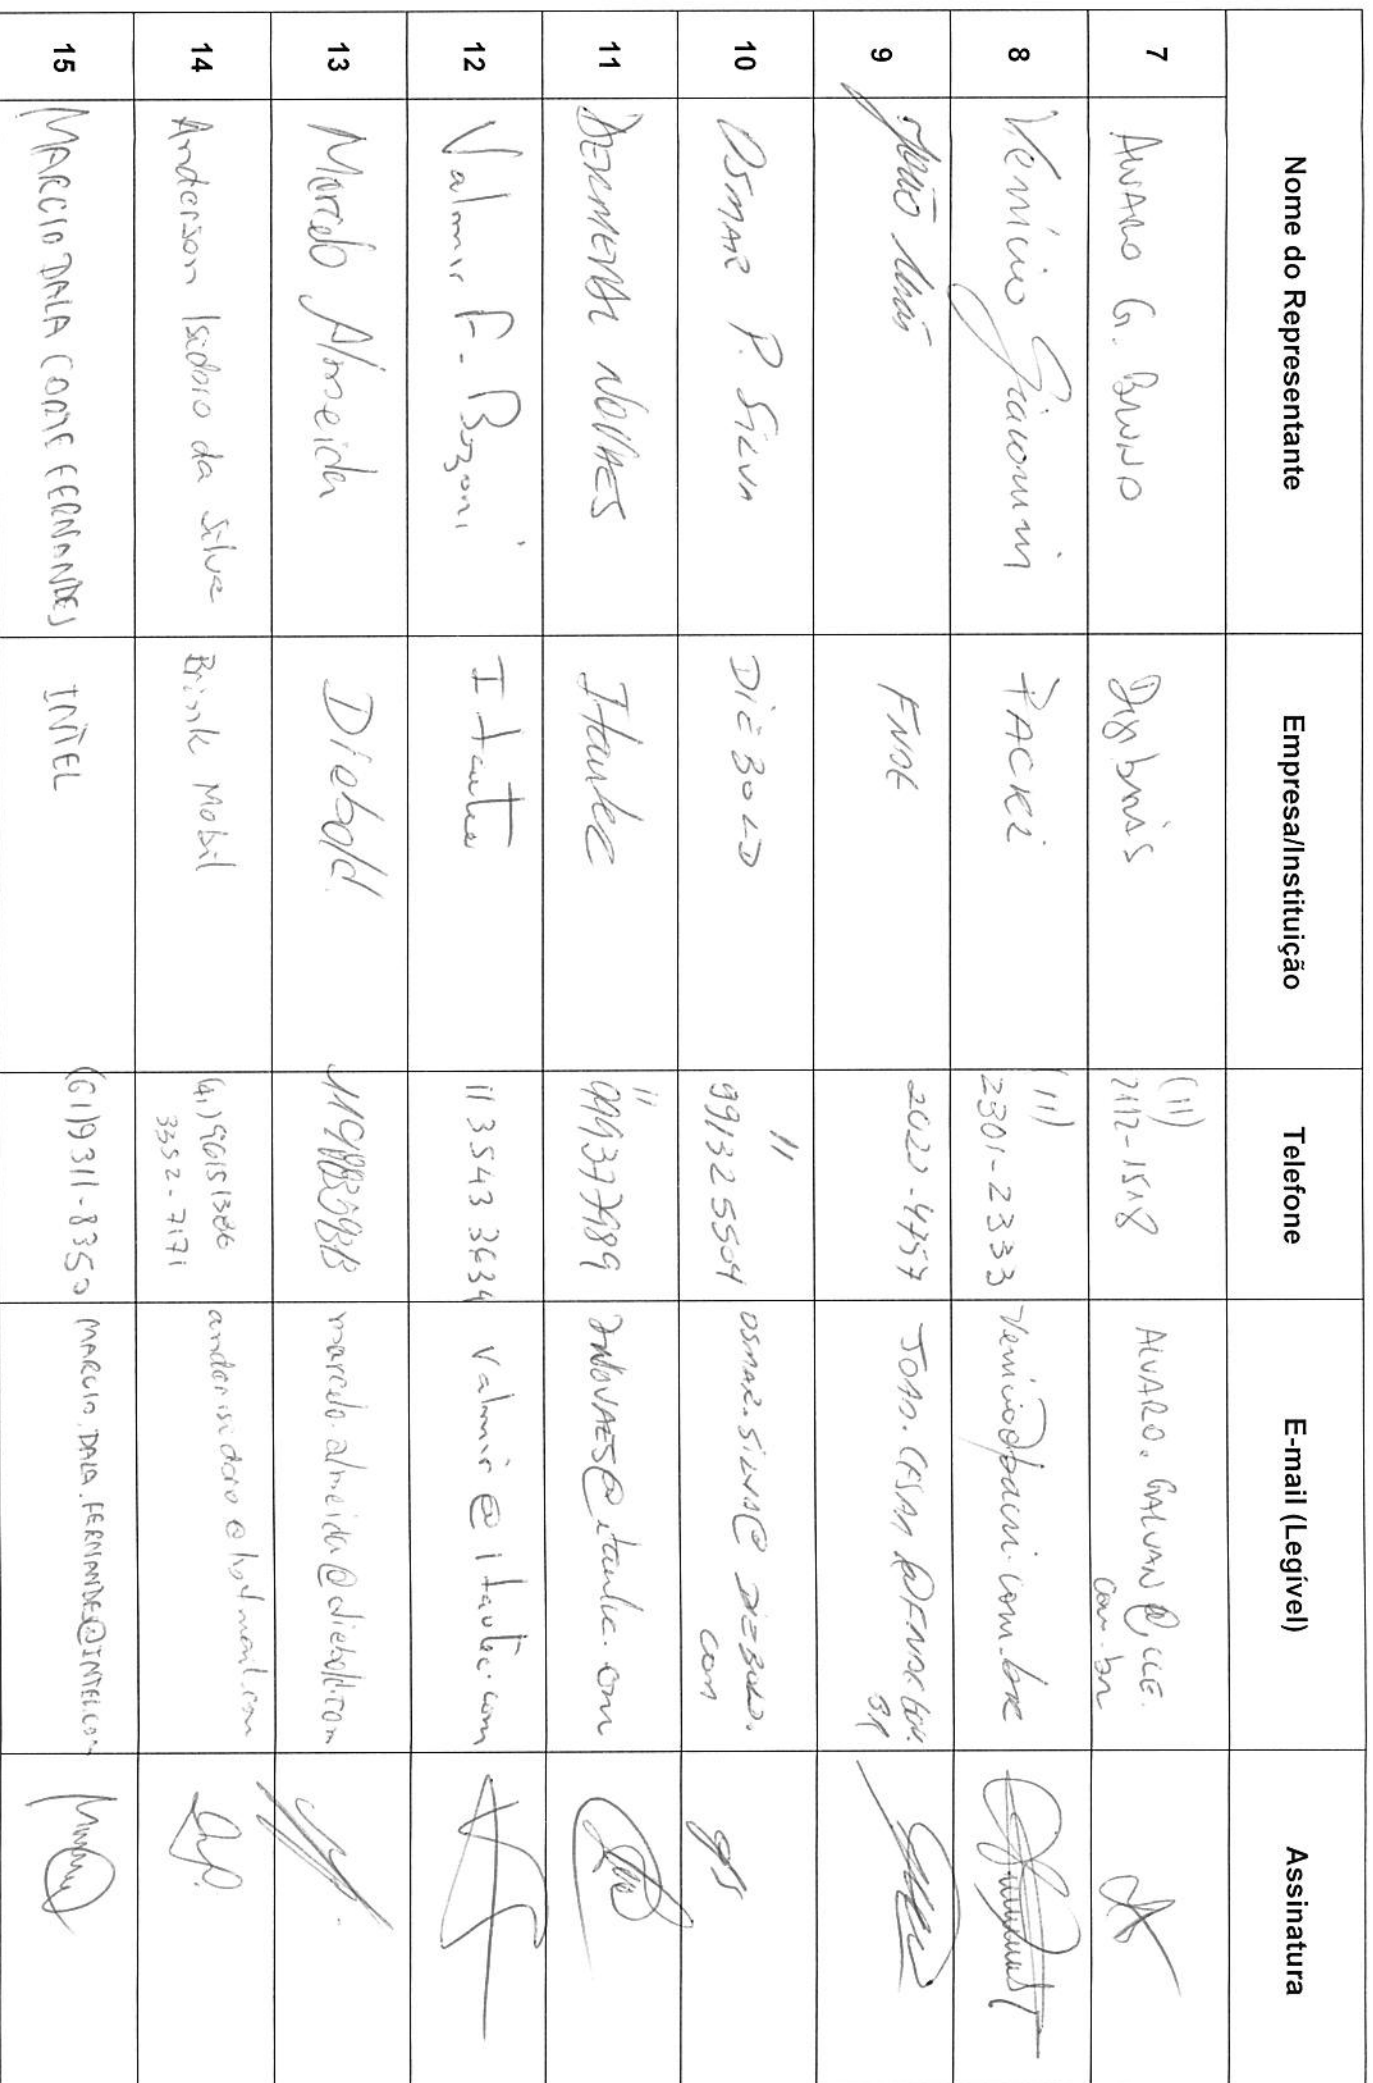 Nome do Representante Empresa/Instituição Telefone E-mail (Legível) Assinatura
7 ALVARO G. BRUNO Digibras (11) 2112-1518 ALVARO.GALVAN@CCE.
com.br
8 Venicio Giacomini PACRI (11) 2301-2333 venicio@pacri.com.br
9 FNDE 2022-4757
10 OSMAR P. SILVA DIEBOLD 11 991325504 OSMAR.SILVA@DIEBOLD.
com
11 NOVAES Itautec 11 999377989 @itautec.com
12 Valmir F. Bozoni Itautec 11 3543 3634 valmir@itautec.com
13 Marcelo Almeida Diebold marcelo.almeida@diebold.com
14 Anderson Isidoro da Silva Brink Mobil (41) 96151386 anderisidoro@hotmail.com
3352-7171
15 MARCIO DALA CORTE FERNANDES INTEL (61)9311-8350 MARCIO.DALA.FERNANDES@INTEL.COM